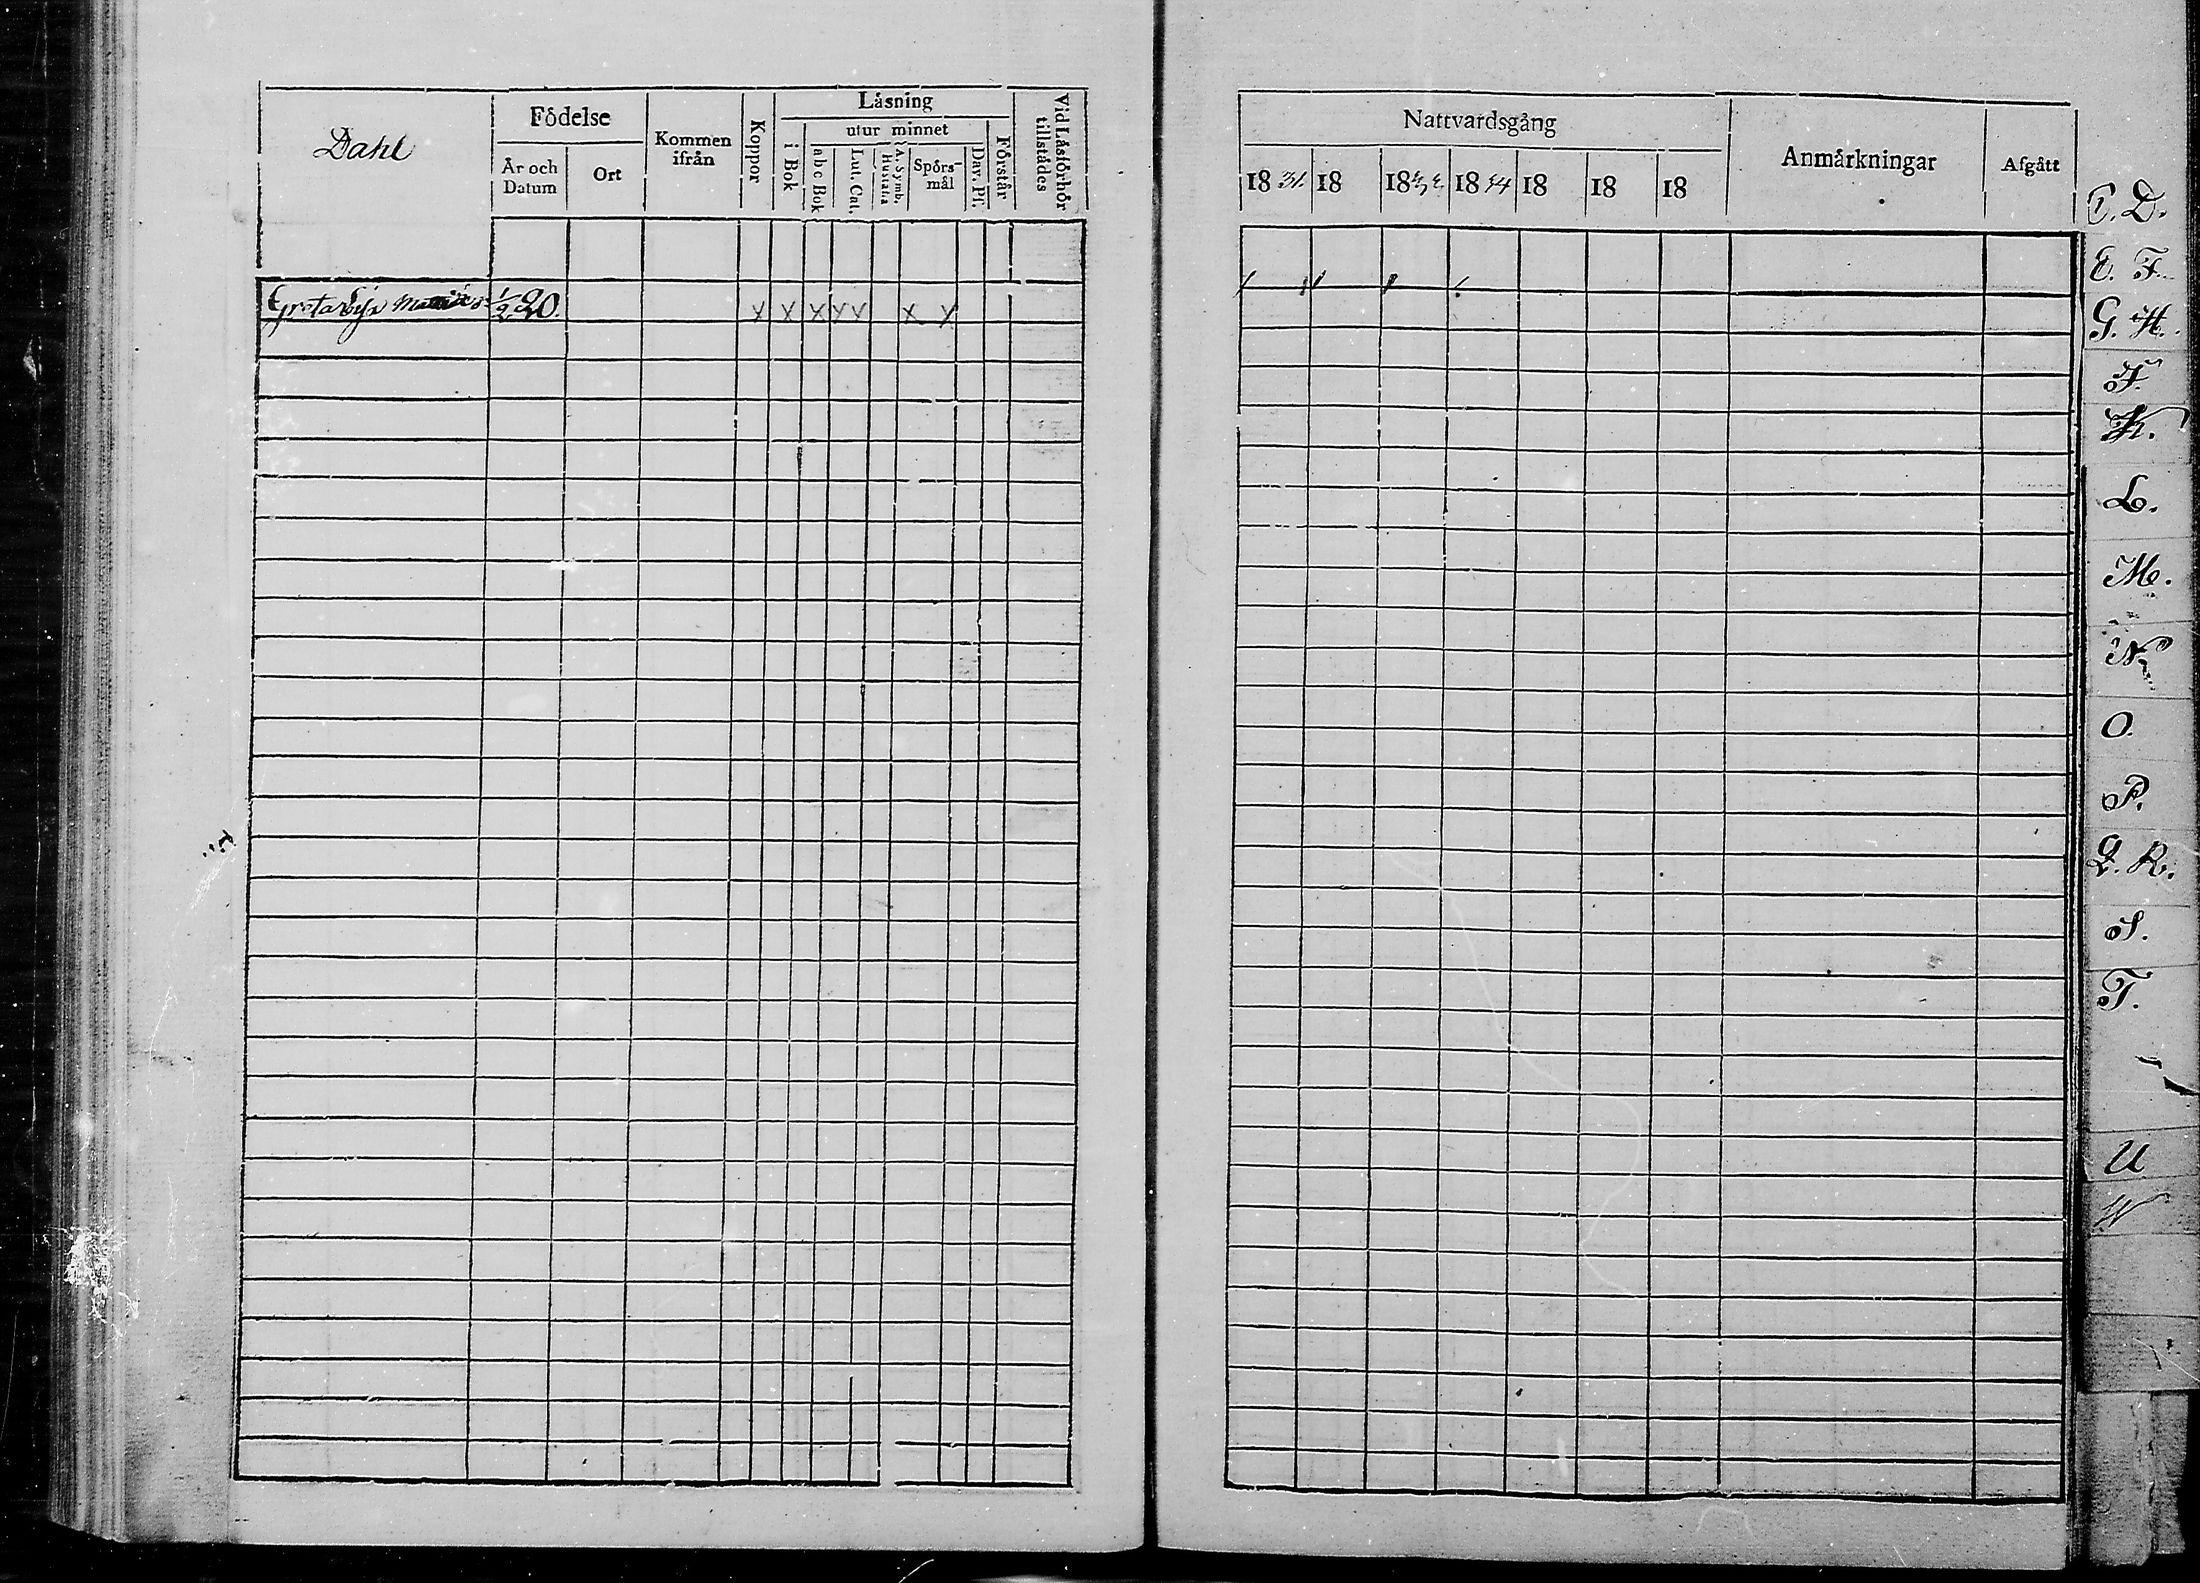 Dahl
Födelse
År och Datum
Ort
Kommen ifrån
Koppor
Läsning
i Bok
utur minnet
a b c Bok
Lut. Cat.
A. Symb. Hustafla
Spörs-mål
Dav. Ps.
Förstår
Vid Läsförhör tillstädes
Greta
1/2 20.
x x x x x x x
Nattvardsgång
18 31. 18 18 18 18 18 18
Anmärkningar
Afgått
C. D.
E. F.
G. H.
F.
K.
L.
M.
N.
O.
P.
Q. R.
S.
T.
U
W